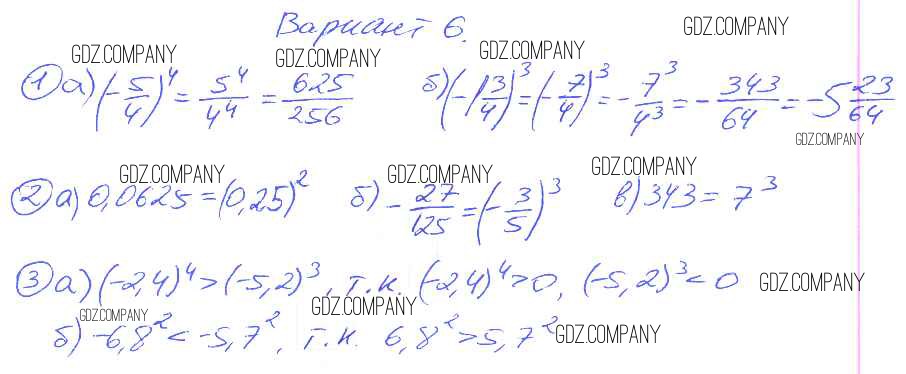 Вариант 6.
GDZ.COMPANY GDZ.COMPANY GDZ.COMPANY GDZ.COMPANY
① а) (-5/4)^4 = 5^4/4^4 = 625/256 б) (-1 3/4)^3 = (-7/4)^3 = -7^3/4^3 = -343/64 = -5 23/64
GDZ.COMPANY
GDZ.COMPANY GDZ.COMPANY GDZ.COMPANY
② а) 0,0625 = (0,25)^2 б) -27/125 = (-3/5)^3 в) 343 = 7^3
③ а) (-2,4)^4 > (-5,2)^3, т.к. (-2,4)^4 > 0, (-5,2)^3 < 0 GDZ.COMPANY
GDZ.COMPANY GDZ.COMPANY
б) -6,8^2 < -5,7^2, т.к. 6,8^2 > 5,7^2 GDZ.COMPANY